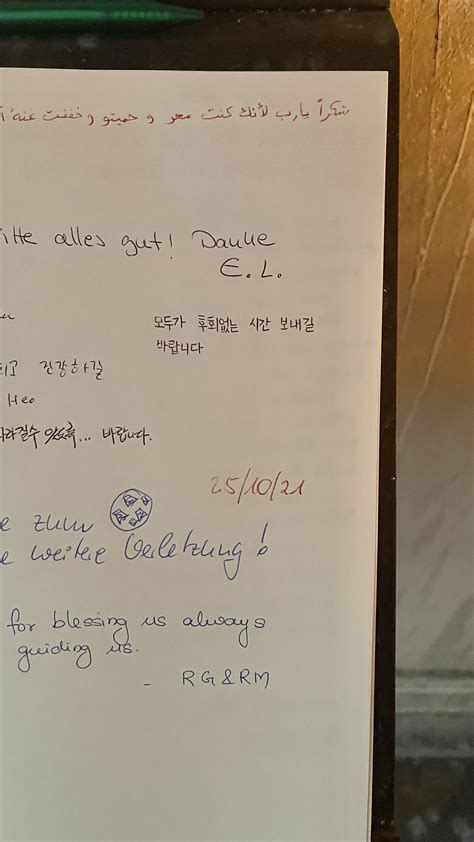 شكراً يارب لأنك كنت معو و حميتو و خففت عنه
alles gut! Danke
E. L.
모두가 후회없는 시간 보내길
바랍니다
건강하길
Heo
있도록... 바랍니다.
25/10/21
zum
weitere Verletzung!
for blessing us always
guiding us.
- RG & RM